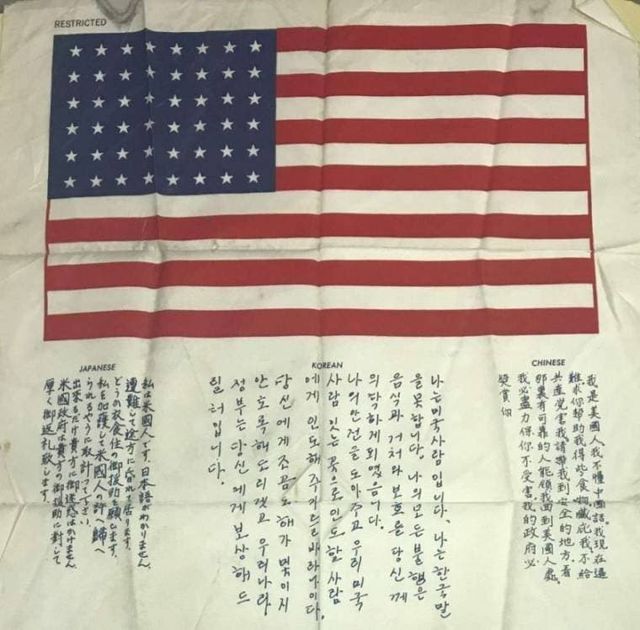 RESTRICTED
JAPANESE
私は米國人です。日本語がわかりません。
遭難して途方に暮れて居ります。
どうか衣食住の御援助を願います。
私を加護して米國人の許へ歸へ
られるやうに取計って下さい。
出来るだけ貴方に御迷惑はかけません。
米國政府は貴方の御援助に對して
厚く御返礼致します。
KOREAN
나는 미국사람 입니다. 나는 한국말
을 못합니다. 나의 모든 불행은
음식과 거처와 보호를 당신께
의탁하게 되였읍니다.
나의 안전을 도아 주고 우리 미국
사람 있는 곳으로 인도할 사람
에게 인도해 주시기를 바라나이다.
당신에게 조곰도 해가 및이지
안토록 해 드리겠고 우리나라
정부는 당신에게 보상해 드
릴 터입니다.
CHINESE
我是美國人我不懂中國話我現在遇
難求你幫助我得些食物藏庇我不給
共產党害我請帶我到安全的地方看
那裏有可靠的人能領我回到美國人處
我必盡力保你不受害我的政府必
獎賞你